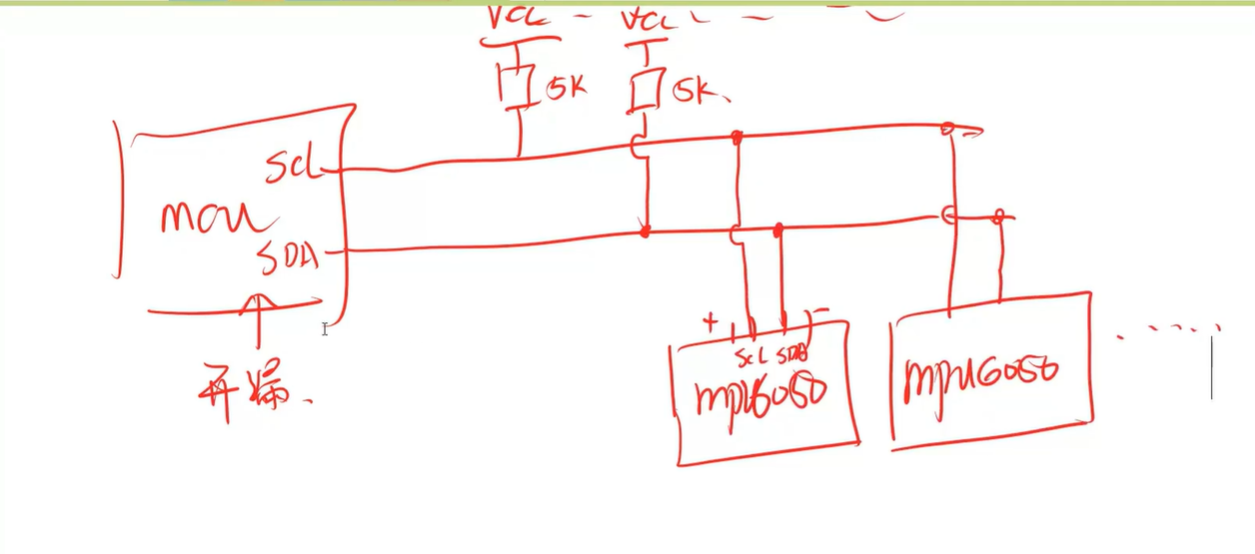 VCC VCC
5K 5K
SCL
mcu
SDA
开漏.
+ -
SCL SDA
mpu6050
mpu6050